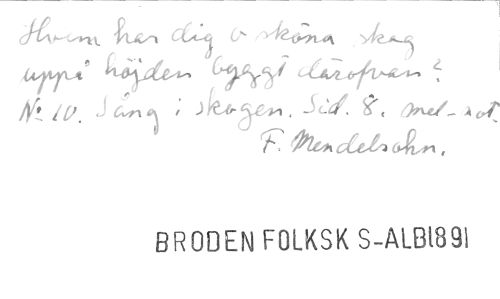 Hvem har dig o sköna skog
uppå höjden byggt därofvan?
No 10. Sång i skogen. Sid. 8. mel-not.
F. Mendelsohn.
BRODEN FOLKSK S-ALB1891